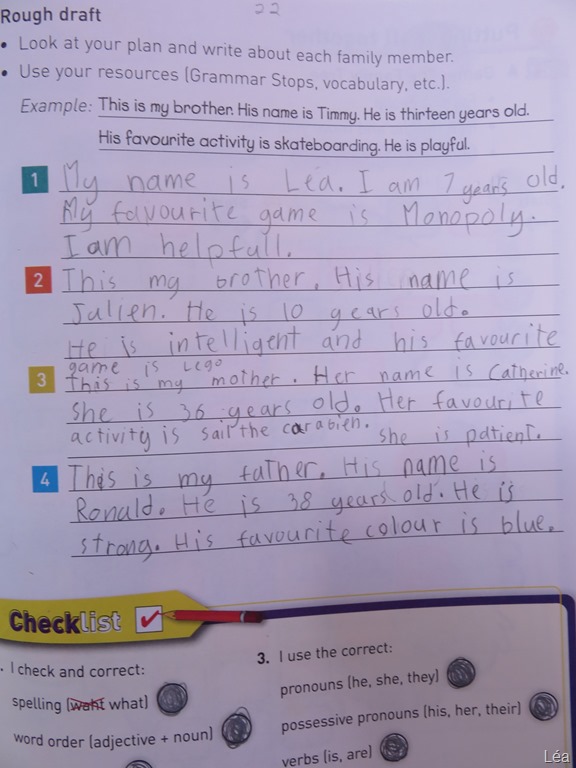 22
Rough draft
• Look at your plan and write about each family member.
• Use your resources (Grammar Stops, vocabulary, etc.).
Example: This is my brother. His name is Timmy. He is thirteen years old.
His favourite activity is skateboarding. He is playful.
1 My name is Léa. I am 7 years old.
My favourite game is Monopoly.
I am helpfull.
2 This my brother. His name is
Julien. He is 10 years old.
He is intelligent and his favourite
game is Lego
3 this is my mother. Her name is Catherine.
She is 36 years old. Her favourite
activity is sail the carabien. she is patient.
4 This is my father. His name is
Ronald. He is 38 years old. He is
strong. His favourite colour is blue.
Checklist
I check and correct:
spelling (waht what)
word order (adjective + noun)
3. I use the correct:
pronouns (he, she, they)
possessive pronouns (his, her, their)
verbs (is, are)
Léa